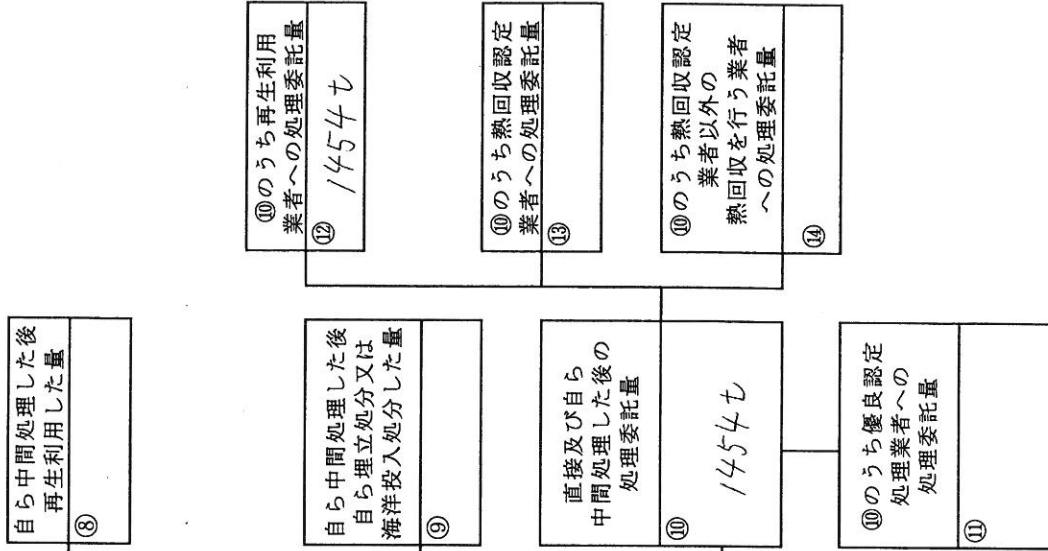 自ら中間処理した後
再生利用した量
⑧
自ら中間処理した後
自ら埋立処分又は
海洋投入処分した量
⑨
直接及び自ら
中間処理した後の
処理委託量
⑩
1454t
⑩のうち優良認定
処理業者への
処理委託量
⑪
⑩のうち再生利用
業者への処理委託量
⑫
1454t
⑩のうち熱回収認定
業者への処理委託量
⑬
⑩のうち熱回収認定
業者以外の
熱回収を行う業者
への処理委託量
⑭